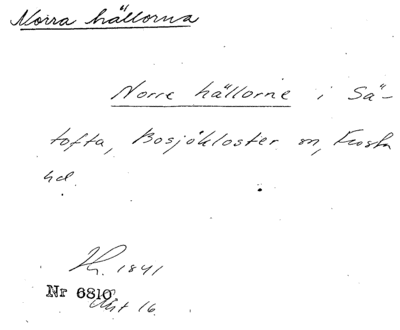 Norra hällorna
Norre hällorne i Sä-
tofta, Bosjökloster sn, Frosta
hd.
1841
Nr 6810
Akt 16.